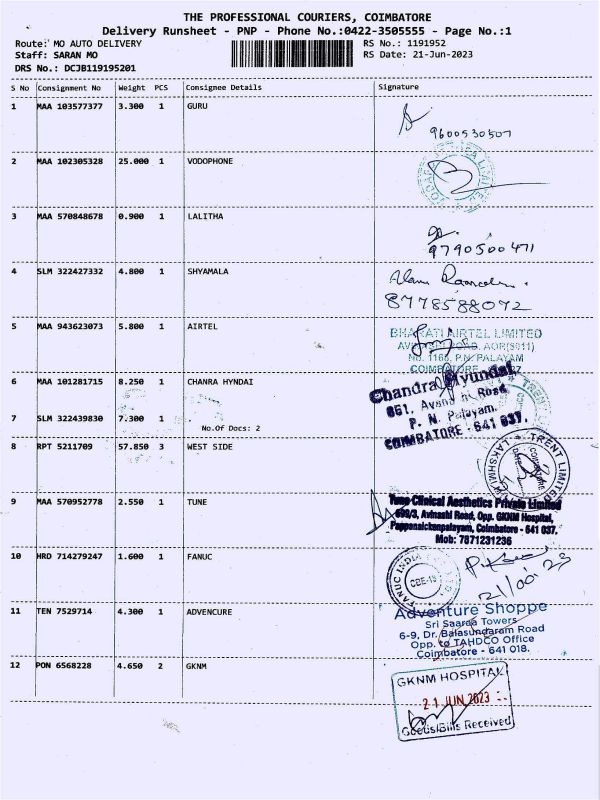 THE PROFESSIONAL COURIERS, COIMBATORE
Delivery Runsheet - PNP - Phone No.:0422-3505555 - Page No.:1
Route: MO AUTO DELIVERY
RS No.: 1191952
Staff: SARAN MO
RS Date: 21-Jun-2023
DRS No.: DCJB119195201
S No Consignment No Weight PCS Consignee Details Signature
1 MAA 103577377 3.300 1 GURU
9600530507
2 MAA 102305328 25.000 1 VODOPHONE
3 MAA 570848678 0.900 1 LALITHA
9790500471
4 SLM 322427332 4.800 1 SHYAMALA
8778588072
5 MAA 943623073 5.800 1 AIRTEL
BHARATI AIRTEL LIMITED
ROAD, AOR(S011)
P.N. PALAYAM
6 MAA 101281715 8.250 1 CHANRA HYNDAI
Chandra Hyundai
Road
P. N. Palayam.
COIMBATORE - 641 037.
7 SLM 322439830 7.300 1
No.Of Docs: 2
8 RPT 5211709 57.850 3 WEST SIDE
TRENT LIMITED
COIMBATORE
LAKSHMI
9 MAA 570952778 2.550 1 TUNE
Tune Clinical Aesthetics Private Limited
699/3, Avinashi Road, Opp. GKNM Hospital,
Pappanaickenpalayam, Coimbatore - 641 037.
Mob: 7871231236
10 HRD 714279247 1.600 1 FANUC
FANUC INDIA
CBE-18
11 TEN 7529714 4.300 1 ADVENCURE
Adventure Shoppe
Sri Saaraa Towers
6-9, Dr. Balasundaram Road
Opp. to TAHDCO Office
Coimbatore - 641 018.
12 PON 6568228 4.650 2 GKNM
GKNM HOSPITAL
21 JUN 2023
Goods/Bills Received